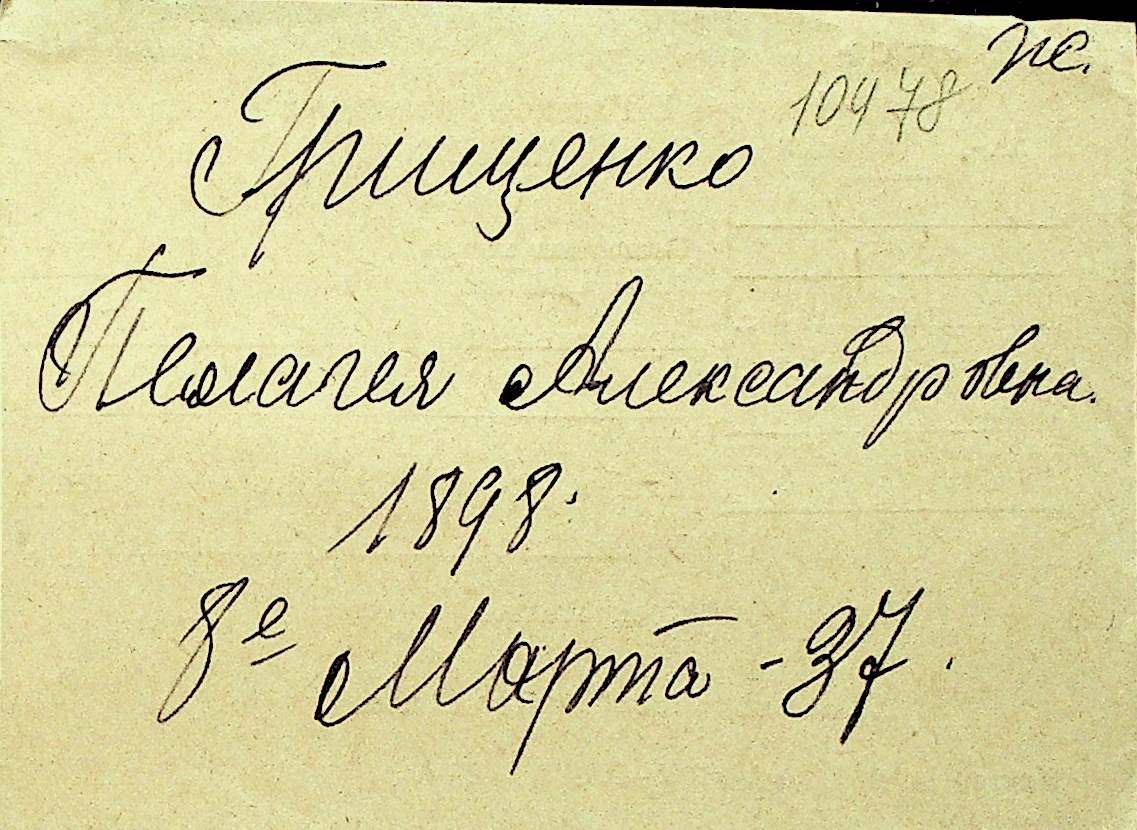 пс.
10478
Грищенко
Пелагея Александровна.
1898.
8е Марта - 37.